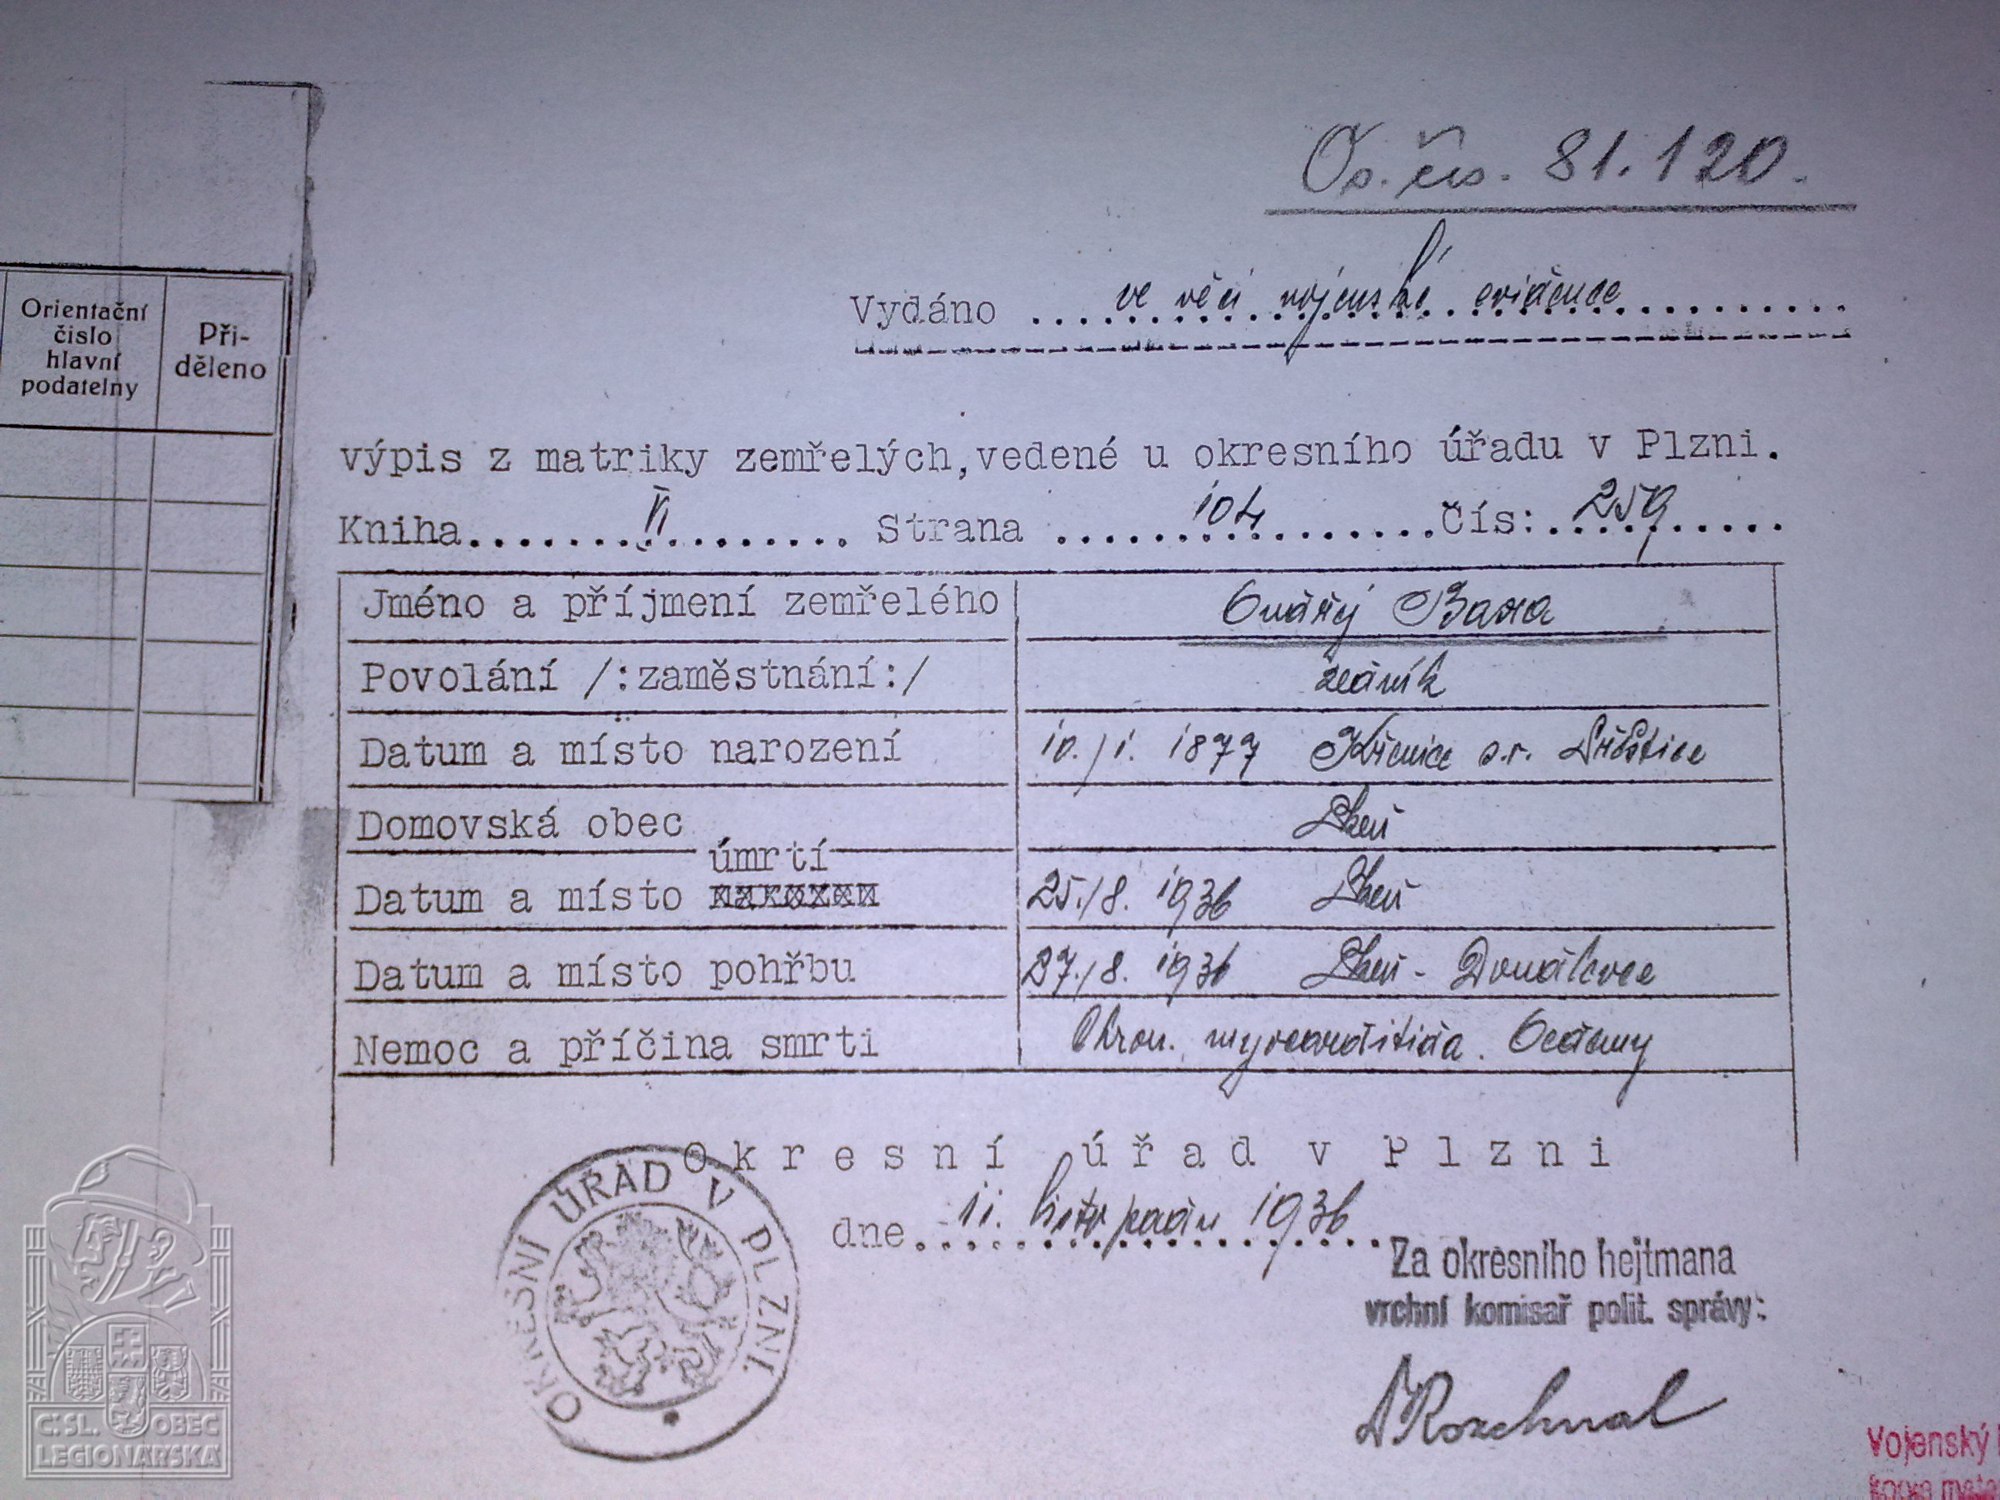 Os. čís. 81.120.
Orientační
číslo
hlavní
podatelny
Při-
děleno
Vydáno ve věci vojenské evidence
výpis z matriky zemřelých, vedené u okresního úřadu v Plzni.
Kniha VI Strana 104 Čís: 259
Jméno a příjmení zemřelého Ondřej Baxa
Povolání /:zaměstnání:/ zedník
Datum a místo narození 10./1. 1877 Křenice o.r.
Domovská obec Lheň
úmrtí
Datum a místo narozen 25./8. 1936
Datum a místo pohřbu 27./8. 1936
Nemoc a příčina smrti Chron. myocarditida.
Okresní úřad v Plzni
dne 11. listopadu 1936
OKRESNÍ ÚŘAD V PLZNI
Za okresního hejtmana
vrchní komisař polit. správy:
Rozehnal
Č.SL. OBEC
LEGIONÁŘSKÁ
Vojenský